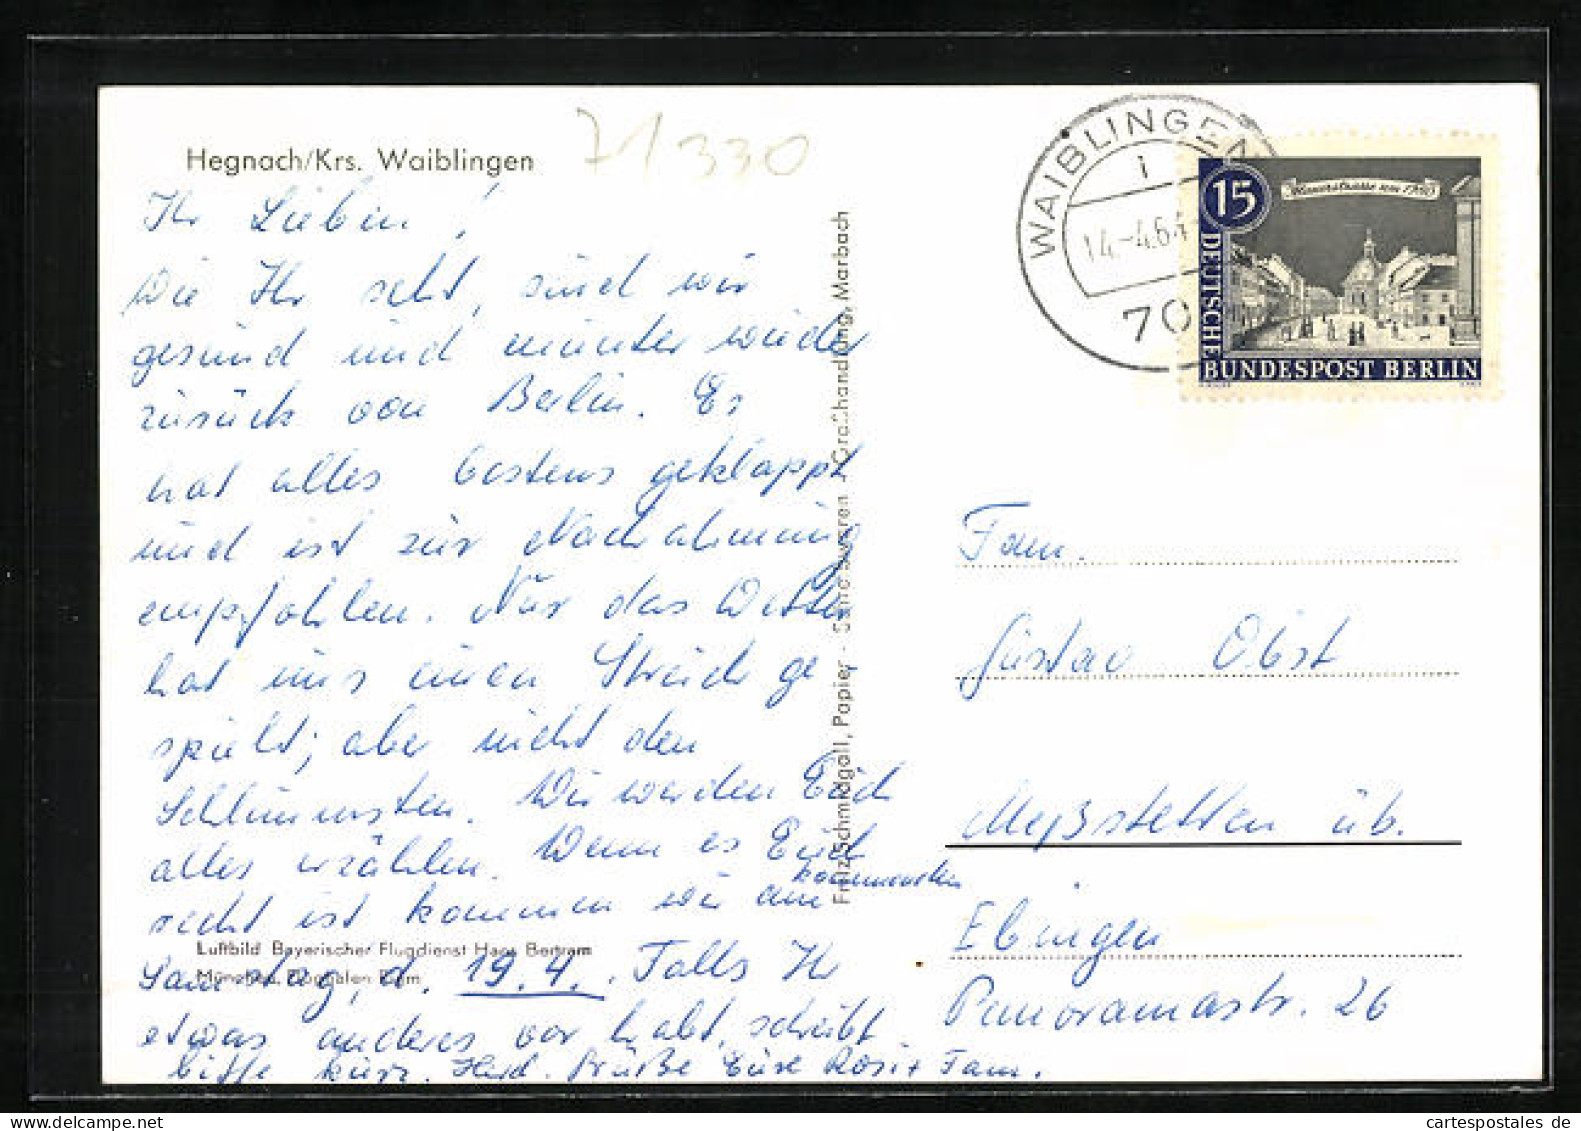 Hegnach/Krs. Waiblingen
71330
Ihr Lieben!
Wie Ihr seht, sind wir
gesund und munter wieder
zurück von Berlin. Es
hat alles bestens geklappt
und ist zur Nachahmung
empfohlen. Nur das Wetter
hat uns einen Streich ge
spielt; aber nicht den
Schlimmsten. Wir werden Euch
alles erzählen. Wenn es Euch
recht ist kommen wir am kommenden
Luftbild Bayerischer Flugdienst Hans Bertram
München, Flughafen Riem
d. 19.4. Falls Ihr
etwas anderes vor habt, schreibt
bitte kurz. Herzl. Grüße Eure Rosi + Fam.
Fritz Schmidgall, Papier- Großhandlung, Marbach
WAIBLINGEN
i
14.-4.64
70
15
Mauerstrasse um 1780
DEUTSCHE
BUNDESPOST BERLIN
Fam.
Gustav Obst
Meßstetten üb.
Ebingen
Panoramastr. 26
cartespostales de